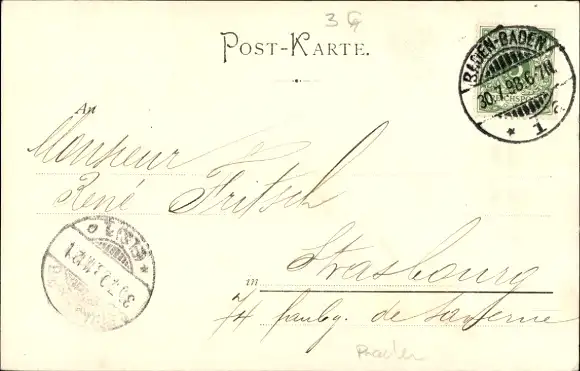 3
POST-KARTE.
BADEN-BADEN
30.7.98.6-7N.
* 1 c
An
Monsieur
René Fritsch
Strasbourg
in
7/4 faubg. de Saverne